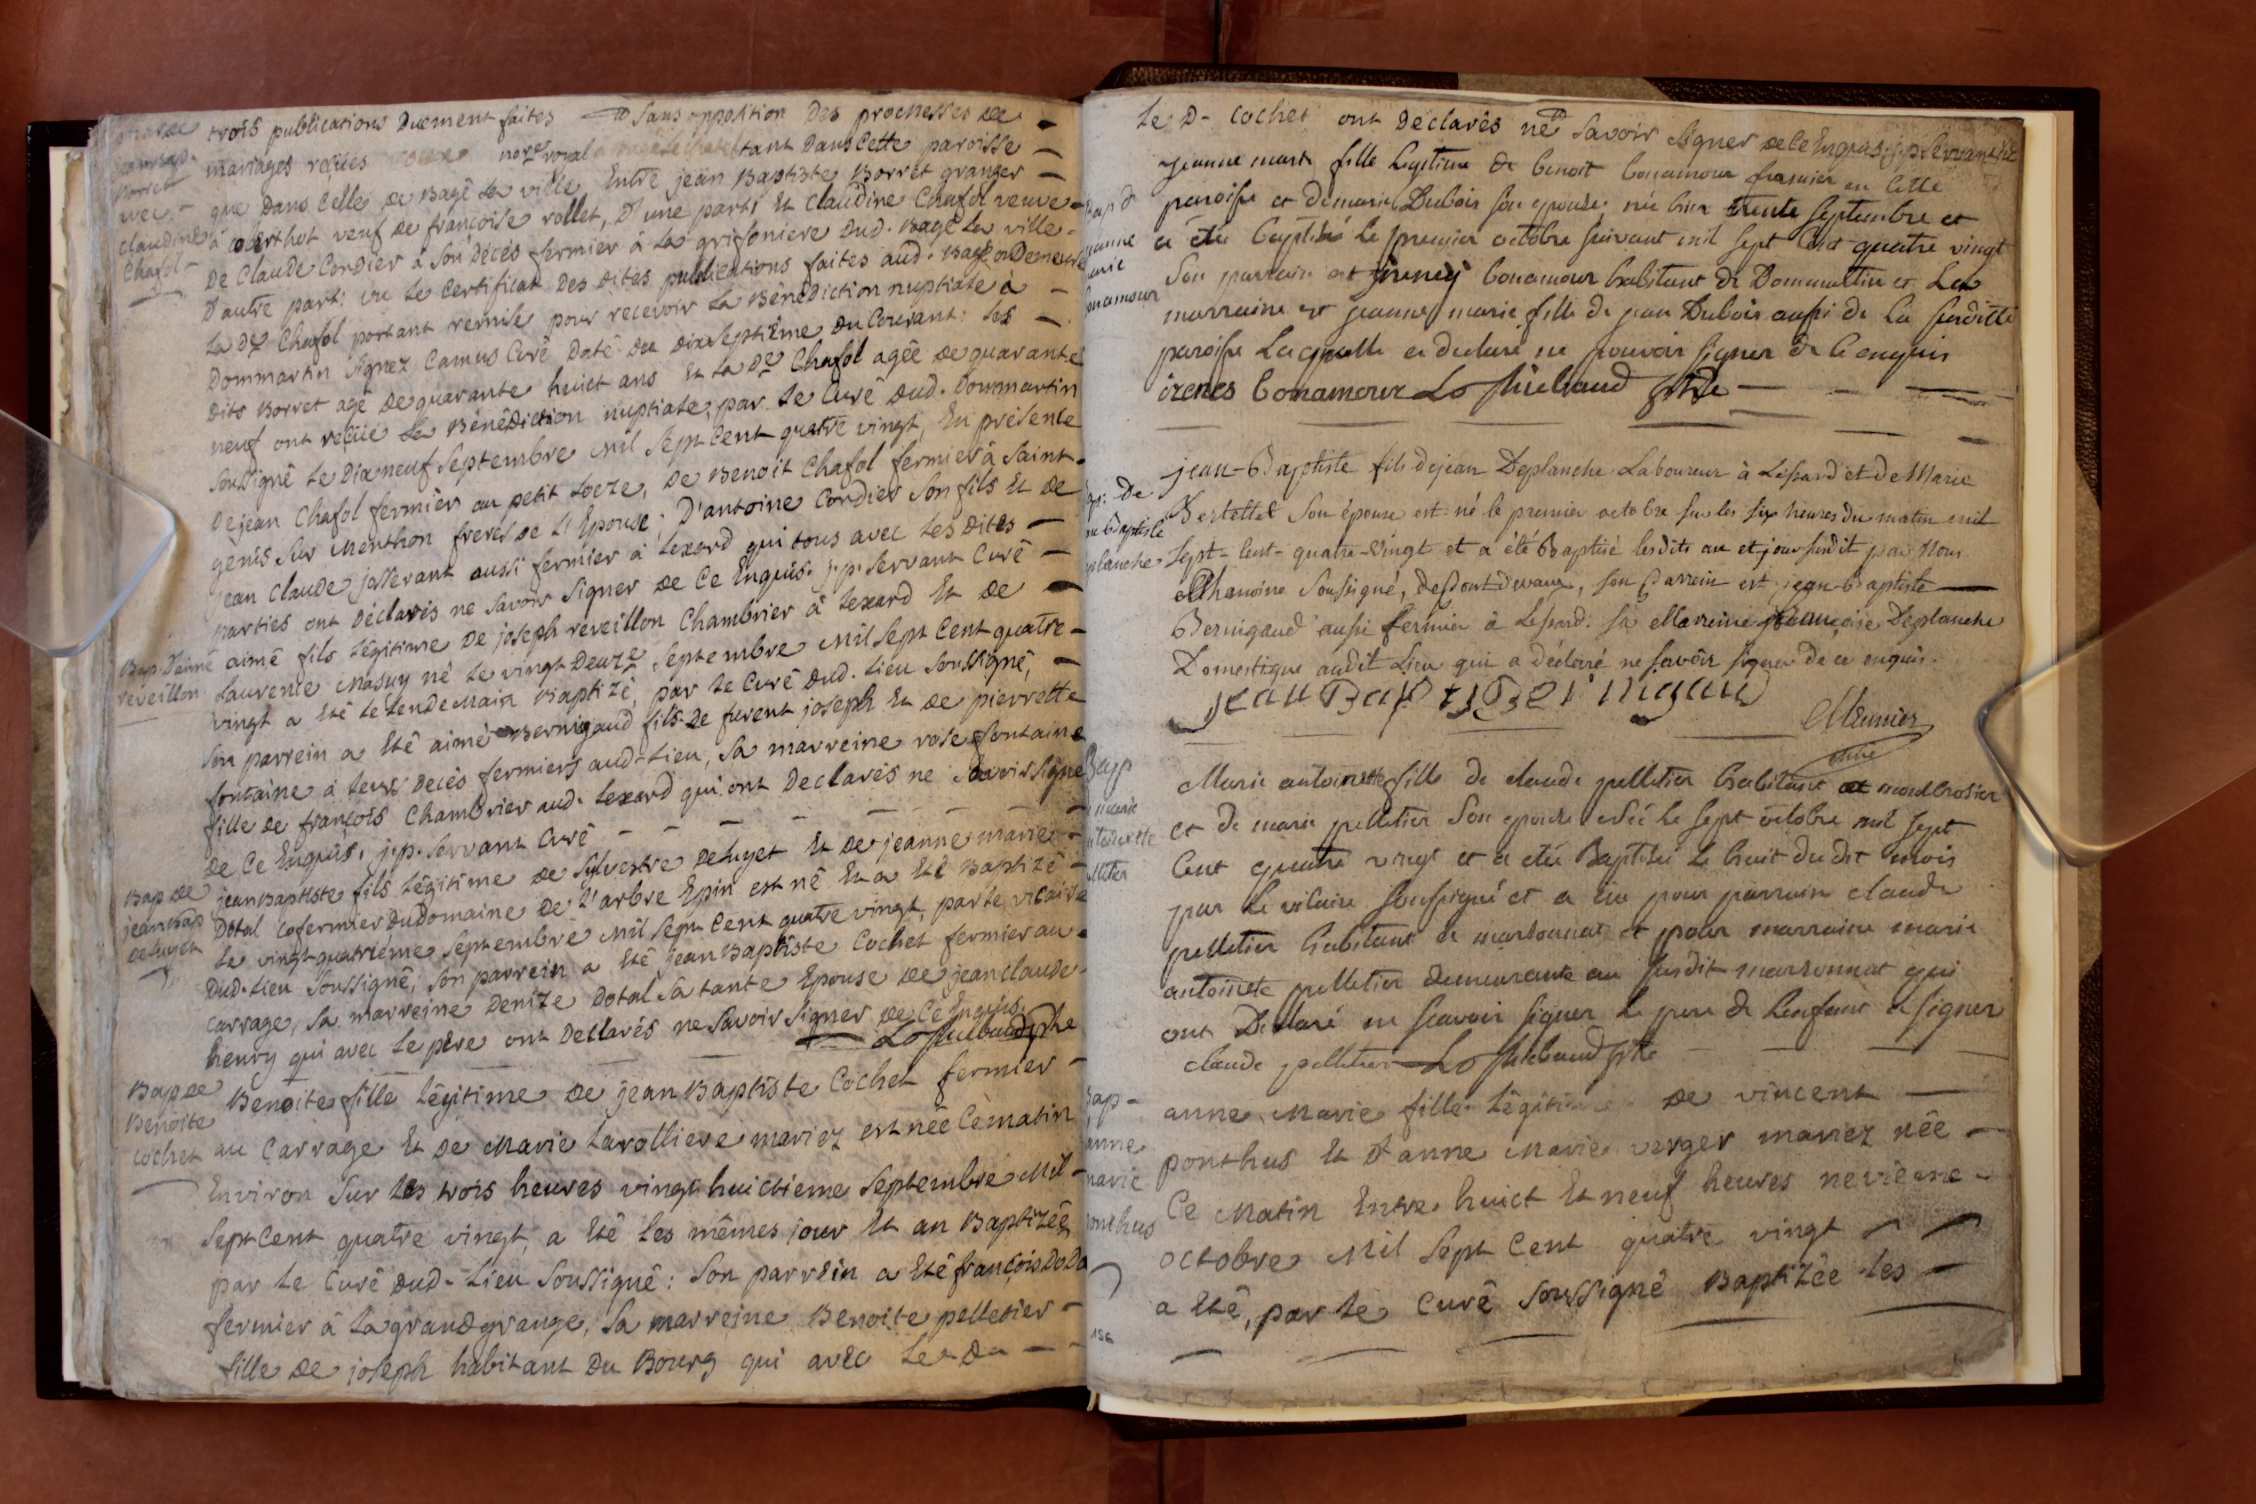 trois publications Duement faites Sans opposition Des promesses de
mariages reçues nore royal tant Dans Cette paroisse
que Dans Celle de Bagé La ville, Entre jean Baptiste Borret granger
à veuf de françoise rollet, D'une part; Et Claudine Chafol veuve
De Claude Cordier à Son Décès fermier à La grifoniere Dud. Bagé La ville
D'autre part: vu Le Certificat Des Dites publications faites aud. Bagé ou Demeure
La De Chafol portant remise pour recevoir La Bénédiction nuptiale à
Dommartin Signez Camus Curé Daté Du Dix Septième Du Courant: Les
Dits Borret agé De quarante huict ans Et La De Chafol agée De quarante
neuf ont reçüe La Bénédiction nuptiale, par Le Curé Dud. Dommartin
Soussigné Le Dixneuf Septembre Mil Sept Cent quatre vingt, En présence
De jean Chafol fermier au petit Loeze, De Benoit Chafol fermier à Saint
genis Sur Menthon freres De L'Epouse; D'antoine Cordier Son fils Et De
jean Claude josserant aussi fermier à Lexard qui tous avec Les Dites
parties ont Déclarés ne Savoir Signer De Ce Enquis. j.p. Servant Curé
Bap. D'aimé
réveillon
aimé fils Légitime De joseph reveillon Chambrier à Lexard Et De
Laurence Masuy né Le vingt Deuze Septembre Mil Sept Cent quatre
vingt a Eté Le Lendemain Baptizé, par Le Curé Dud. Lieu Soussigné,
Son parrein a Eté aimé Bernigaud fils De furent joseph Et De pierrette
fontaine à Leurs Decès fermiers aud. Lieu, Sa marreine rose fontaine
fille De françois Chambrier aud. Lexard qui ont Declarés ne Savoir Signer
De Ce Enquis. j.p. Servant Curé
Bap De
jean Bap
Deluyet
jean Baptiste fils Légitime De Sylvestre Deluyet Et De jeanne marie
Dotal Cofermier Du Domaine De L'arbre Epin est né Et a Eté Baptizé
Le vingt quatrième Septembre Mil Sept Cent quatre vingt, par Le vicaire
Dud. Lieu Soussigné, Son parrein a Eté jean Baptiste Cochet fermier au
Carrage, Sa marreine Denize Dotal Sa tante Epouse De jean Claude
henry qui avec Le pere ont Declarés ne Savoir Signer De Ce Enquis
Bap De
Benoite
Cochet
Benoite fille Légitime De jean Baptiste Cochet fermier
au Carrage Et De Marie Larolliere mariez est née Ce matin
Environ Sur Les trois heures vingt huictieme Septembre Mil
Sept Cent quatre vingt, a Eté Les mêmes jour Et an Baptizée
par Le Curé Dud. Lieu Soussigné: Son parrein a Eté françois Dodo
fermier à La grand grange, Sa marreine Benoite pelletier
fille De joseph habitant Du Bourg qui avec Le D
Le D- Cochet ont Declarés ne Savoir Signer De Ce Enquis. j.p. Servant
Jeanne marie fille Legitime de benoit bonamour fermier en Cette
paroisse et de marie Dubois son epouse, née hier trente septembre et
a été baptisé Le premier octobre suivant mil sept Cent quatre vingt
Son parrain est bonamour habitant de Dommartin et La
marraine est jeanne marie fille de jean Dubois aussi de La susditte
paroisse Laquelle a declaré ne pouvoir signer de ce enquis
irenes bonamour
Jean-Baptiste fils de jean Deplanche Laboureur à Lessard et de Marie
Bertellet son épouse est né le premier octobre sur les six heures du matin mil
sept-Cent-quatre-vingt et a été Baptisé lesdits an et jour susdit par Nous
Chanoine Soussigné, de Pontdevaux, son Parrein est jean-Baptiste
Bernigaud aussi fermier à Lessard. sa Marreine françoise Deplanche
Domestique audit Lieu qui a déclaré ne savoir signer de ce enquis.
jean Bap
Meunier
Bap
marie
Marie antoinette fille de claude pelletier habitant
et de marie pelletier son epouse née Le sept octobre mil sept
Cent quatre vingt et a eté Baptisée Le huit dudit mois
par Le vicaire soussigné et a eu pour parrain claude
pelletier habitant a marsonnat et pour marraine marie
antoinete pelletier demeurante au susdit marsonnat qui
ont Declaré ne scavoir signer Le pere de Lenfant a signer
claude pelletier
Bap
anne
marie
ponthus
anne Marie fille Légitime De vincent
ponthus Et D'anne Marie verger mariez née
Ce Matin Entre huict Et neuf heures nevième
octobre Mil Sept Cent quatre vingt
a Eté, par Le Curé Soussigné Baptizée Les